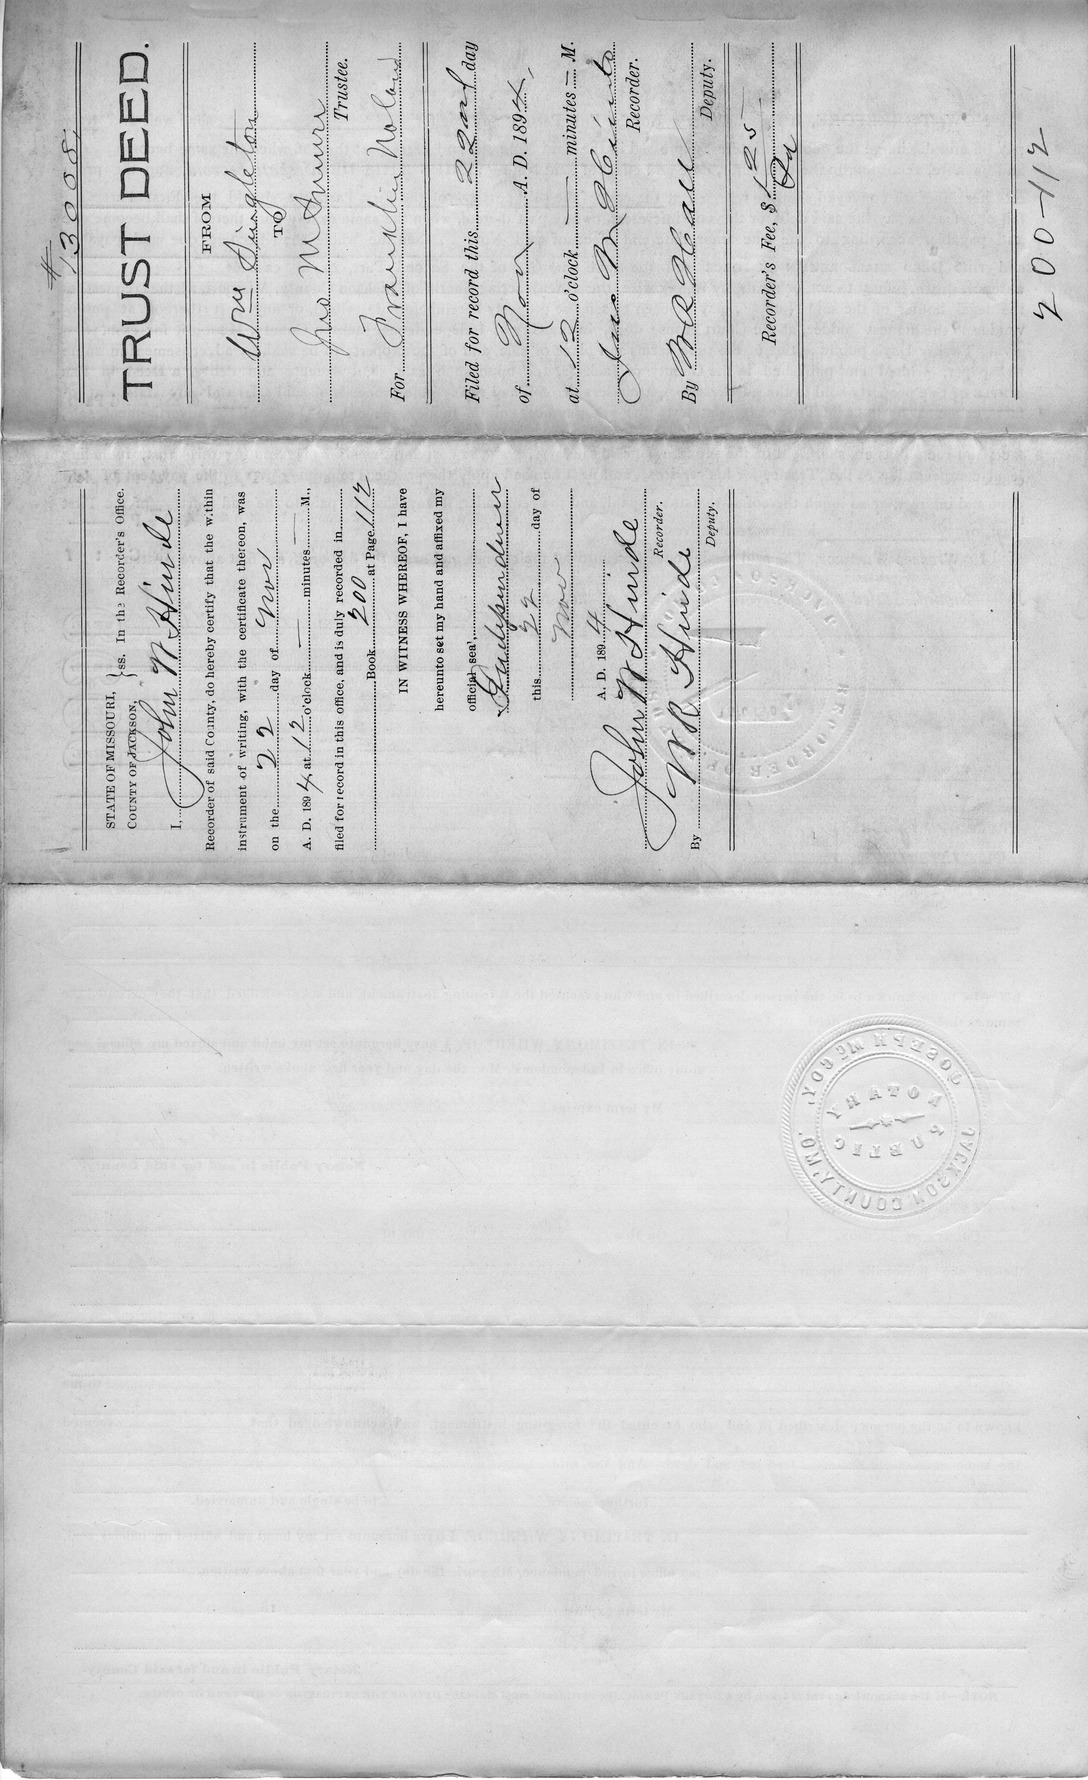 # 13005.
TRUST DEED.
FROM
Wm Singleton
TO
Jno
Trustee.
For Franklin Noland
Filed for record this 22nd day
of Nov A. D. 1894.
at 12 o'clock — minutes — M.
Jno N Hinde
Recorder.
By W R Hall
Deputy.
Recorder's Fee, $ 1.25
Pd
200-112
STATE OF MISSOURI, } ss. In the Recorder's Office.
COUNTY OF JACKSON,
I, John N Hinde
Recorder of said County, do hereby certify that the within
instrument of writing, with the certificate thereon, was
on the 22 day of Nov
A. D. 1894 at 12 o'clock — minutes — M.,
filed for record in this office, and is duly recorded in
Book 200 at Page 112
IN WITNESS WHEREOF, I have
hereunto set my hand and affixed my
official seal,
this 22 day of
Nov
A. D. 1894
John N Hinde
Recorder.
By W R Hinde
Deputy.
RECORDER OF
JACKSON CO
JOSEPH MECOY,
NOTARY
PUBLIC
JACKSON COUNTY, MO.